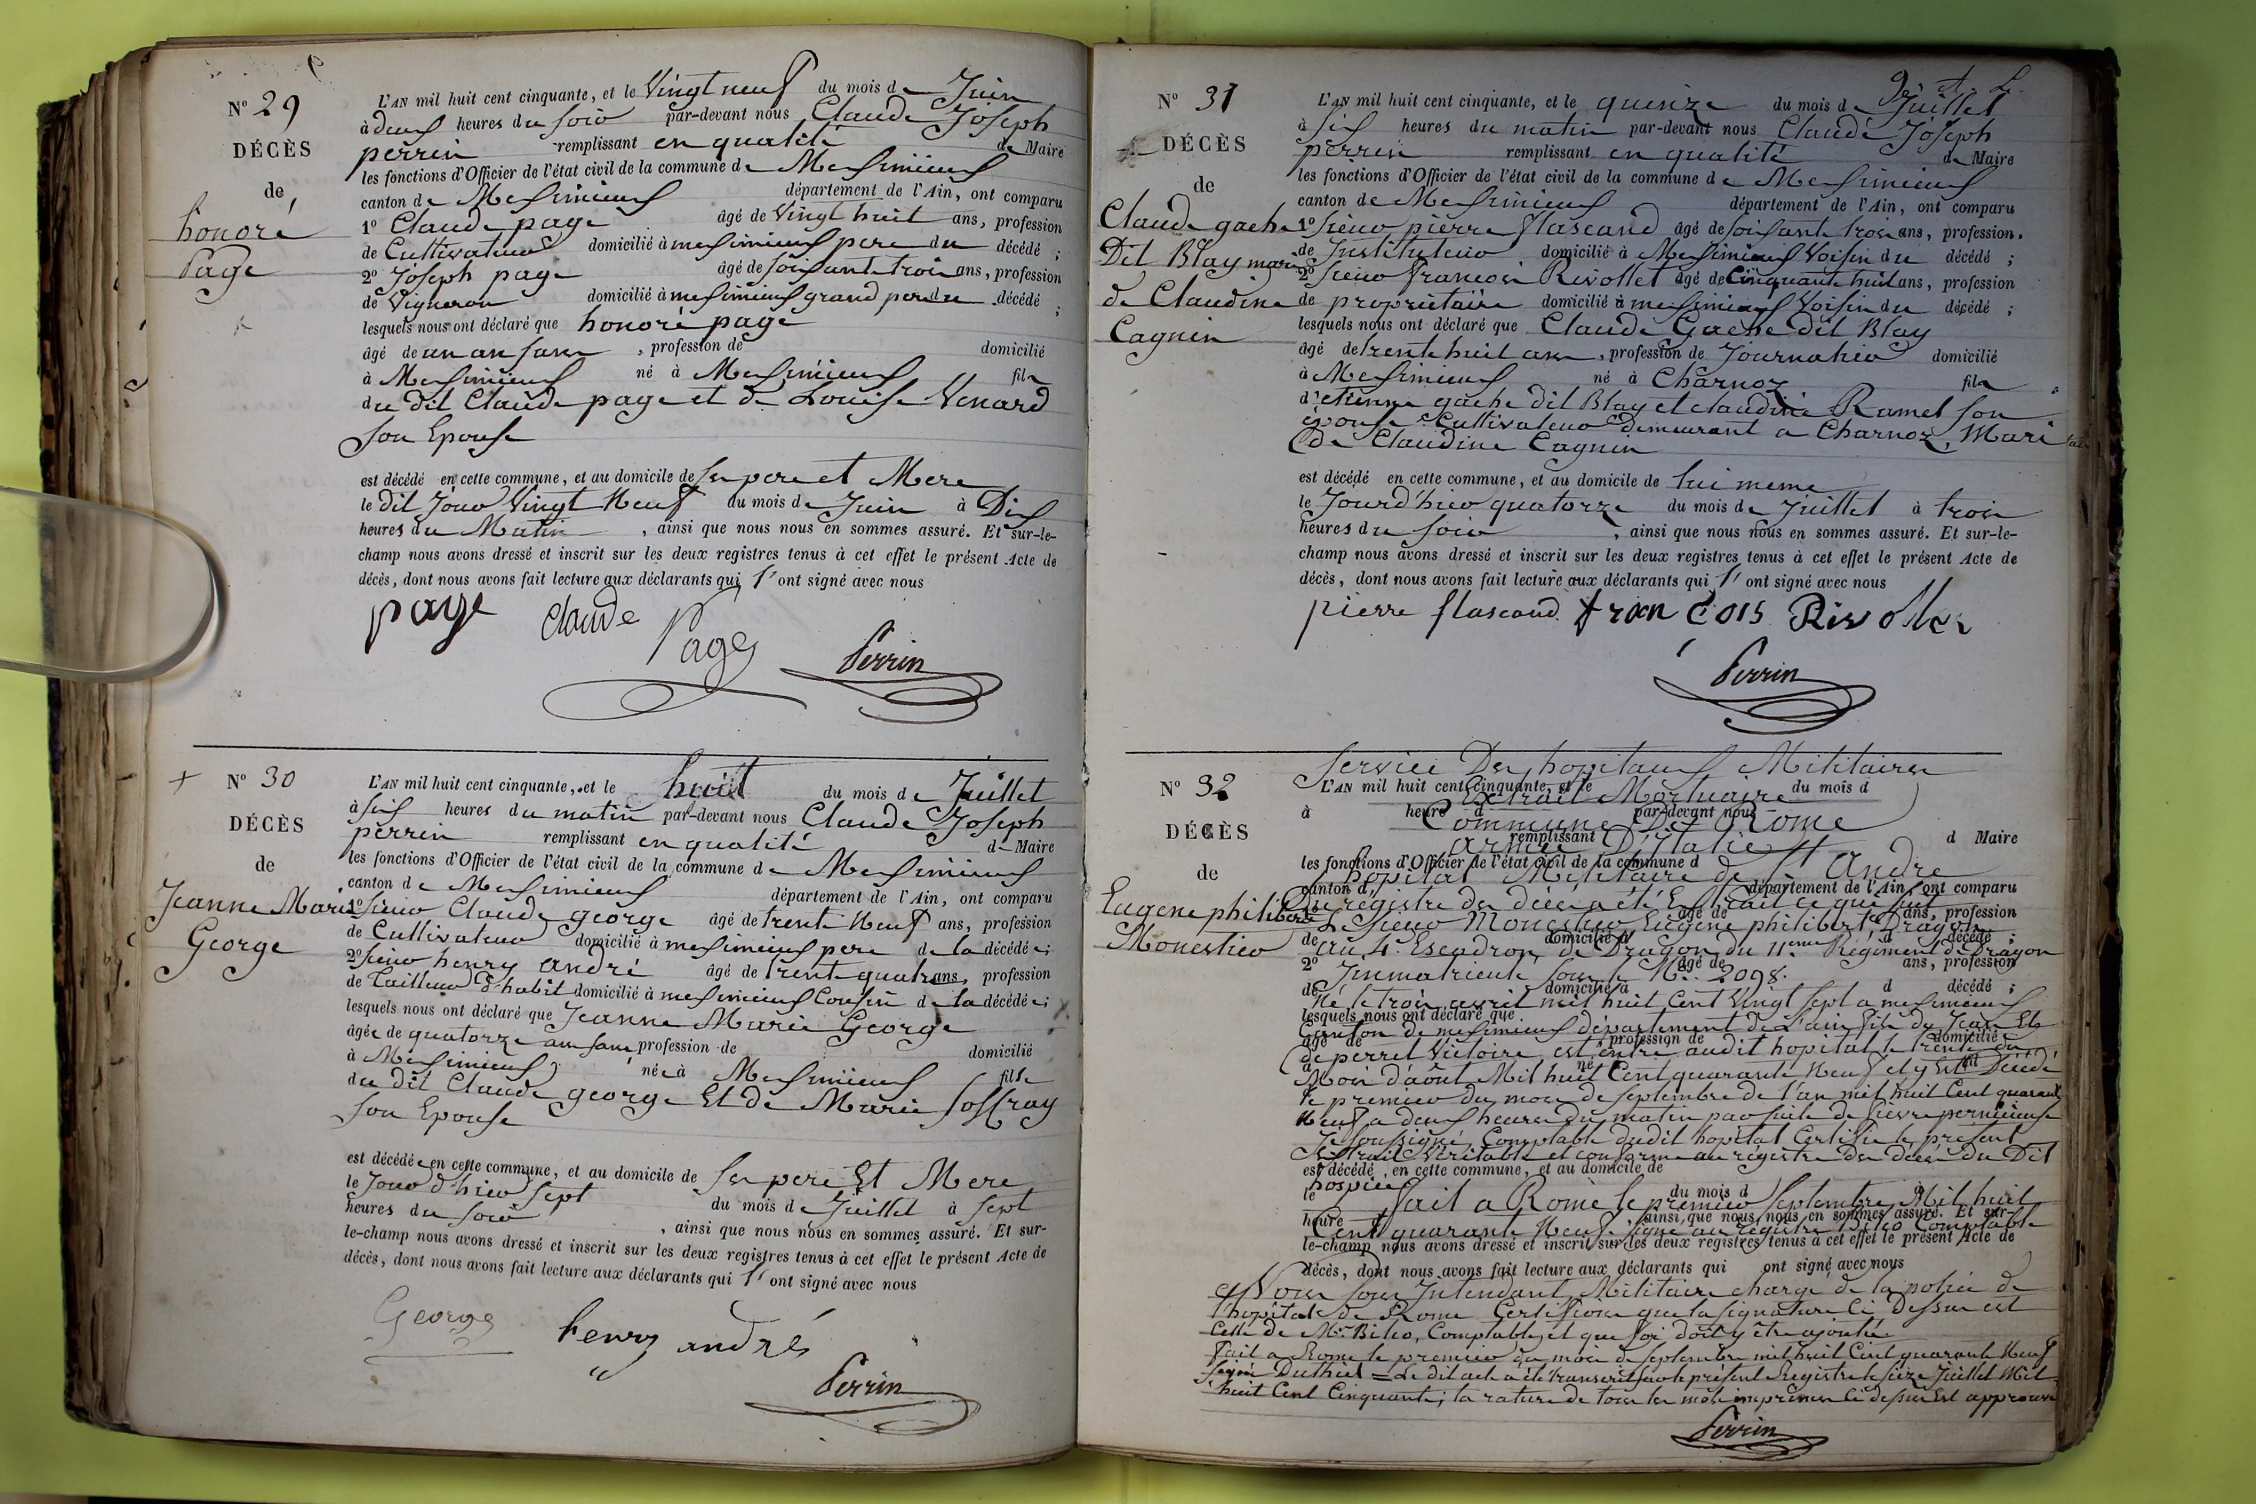 N° 29
DÉCÈS
de
honoré
Page
L'AN mil huit cent cinquante, et le Vingt neuf du mois de Juin
à deux heures du soir par-devant nous Claude Joseph
perrin remplissant en qualité de Maire
les fonctions d'Officier de l'état civil de la commune de Meximieux
canton de Meximieux département de l'Ain, ont comparu
1° Claude page âgé de Vingt huit ans, profession
de Cultivateur domicilié à meximieux pere du décédé ;
2° Joseph page âgé de soixante trois ans, profession
de Vigneron domicilié à meximieux grand pere du décédé ;
lesquels nous ont déclaré que honoré page
âgé de un an , profession de domicilié
à Meximieux né à Meximieux fils
du dit Claude page et de Louise Venard
son Epouse
est décédé en cette commune, et au domicile de ses pere et Mere
le dit Jour Vingt Neuf du mois de Juin à Dix
heures du Matin , ainsi que nous nous en sommes assuré. Et sur-le-
champ nous avons dressé et inscrit sur les deux registres tenus à cet effet le présent Acte de
décès, dont nous avons fait lecture aux déclarants qui l' ont signé avec nous
page claude Page Perrin
N° 30
DÉCÈS
de
Jeanne Marie
George
L'AN mil huit cent cinquante, et le huit du mois de Juillet
à six heures du matin par-devant nous Claude Joseph
perrin remplissant en qualité de Maire
les fonctions d'Officier de l'état civil de la commune de Meximieux
canton de Meximieux département de l'Ain, ont comparu
1° sieur Claude george âgé de trente Neuf ans, profession
de Cultivateur domicilié à meximieux pere de la décédée ;
2° sieur henry andré âgé de trente quatre ans, profession
de Tailleur d'habit domicilié à meximieux Cousin de la décédée ;
lesquels nous ont déclaré que Jeanne Marie George
âgée de quatorze ans profession de domicilié
à Meximieux née à Meximieux fille
du dit Claude george Et de Marie
son Epouse
est décédée en cette commune, et au domicile de ses pere Et Mere
le Jour d'hier sept du mois de Juillet à sept
heures du soir , ainsi que nous nous en sommes assuré. Et sur-
le-champ nous avons dressé et inscrit sur les deux registres tenus à cet effet le présent Acte de
décès, dont nous avons fait lecture aux déclarants qui l' ont signé avec nous
George henry andré
Perrin
N° 31
DÉCÈS
de
Claude gache
Dit Blay mari
de Claudine
Cagnin
L'AN mil huit cent cinquante, et le quinze du mois de Juillet
à six heures du matin par-devant nous Claude Joseph
perrin remplissant en qualité de Maire
les fonctions d'Officier de l'état civil de la commune de Meximieux
canton de Meximieux département de l'Ain, ont comparu
1° sieur pierre flascaud âgé de soixante trois ans, profession
de Instituteur domicilié à Meximieux Voisin du décédé ;
2° sieur françois Rivollet âgé de Cinquante huit ans, profession
de propriétaire domicilié à meximieux Voisin du décédé ;
lesquels nous ont déclaré que Claude Gache dit Blay
âgé de trente huit ans , profession de Journalier domicilié
à Meximieux né à Charnoz fils
d'etienne gache dit Blay et claudine Ramel son
épouse Cultivateur demeurant a Charnoz, Mari
de Claudine Cagnin
est décédé en cette commune, et au domicile de lui meme
le Jourd'hier quatorze du mois de Juillet à trois
heures du soir , ainsi que nous nous en sommes assuré. Et sur-le-
champ nous avons dressé et inscrit sur les deux registres tenus à cet effet le présent Acte de
décès, dont nous avons fait lecture aux déclarants qui l' ont signé avec nous
pierre flascaud françois Rivollet
Perrin
N° 32
DÉCÈS
de
Eugene philibert
Monestier
Service Des hopitaux Militaires
L'AN mil huit cent cinquante, et le du mois d
Extrait Mortuaire
à heure d par-devant nous
Commune De Rome
remplissant d Maire
armée D'Italie
les fonctions d'Officier de l'état civil de la commune d
hopital Militaire de St André
canton d département de l'Ain, ont comparu
Du registre des décès a été Extrait ce qui suit
1° âgé de ans, profession
Le sieur Monestier Eugène philibert Dragon
de domicilié à d décédé ;
au 4e Escadron de Dragon du 11eme Régiment de Dragon
2° âgé de ans, profession
Immatriculé sous le N° 2098.
de domicilié à d décédé ;
Né le trois avril mil huit Cent Vingt sept a meximieux
lesquels nous ont déclaré que
Canton de meximieux département de L'ain fils de Jean Et
âgé de profession de domicilié
de perret Victoire, est entré audit hopital le trente du
à né fil
Mois d'août Mil huit Cent quarante Neuf et y Est Décédé
le premier du mois de septembre de l'an mil huit Cent quarante
Neuf a deux heures du matin par suite de fievre pernicieuse
Je soussigné Comptable dudit hopital Certifie le présent
Extrait Véritable et conforme au régistre des décès du Dit
est décédé en cette commune, et au domicile de
hospice
le du mois d à
fait a Rome le premier Septembre Mil huit
heure , ainsi que nous nous en sommes assuré. Et sur-
Cent quarante Neuf. signé au régistre Comptable
le-champ nous avons dressé et inscrit sur les deux registres tenus à cet effet le présent Acte de
décès, dont nous avons fait lecture aux déclarants qui ont signé avec nous
Nous sous Intendant Militaire chargé de la police de
l'hopital de Rome Certifions que la signature Ci Dessus est
Celle de Mr Comptable, et que foi doit y être ajoutée
fait a Rome le premier du mois de septembre mil huit Cent quarante Neuf
signé Duthiel = Le dit acte a été transcrit sur le présent Registre le seize Juillet Mil
huit Cent Cinquante; la rature de tous les mots imprimes Ci dessus Est approuvé
Perrin